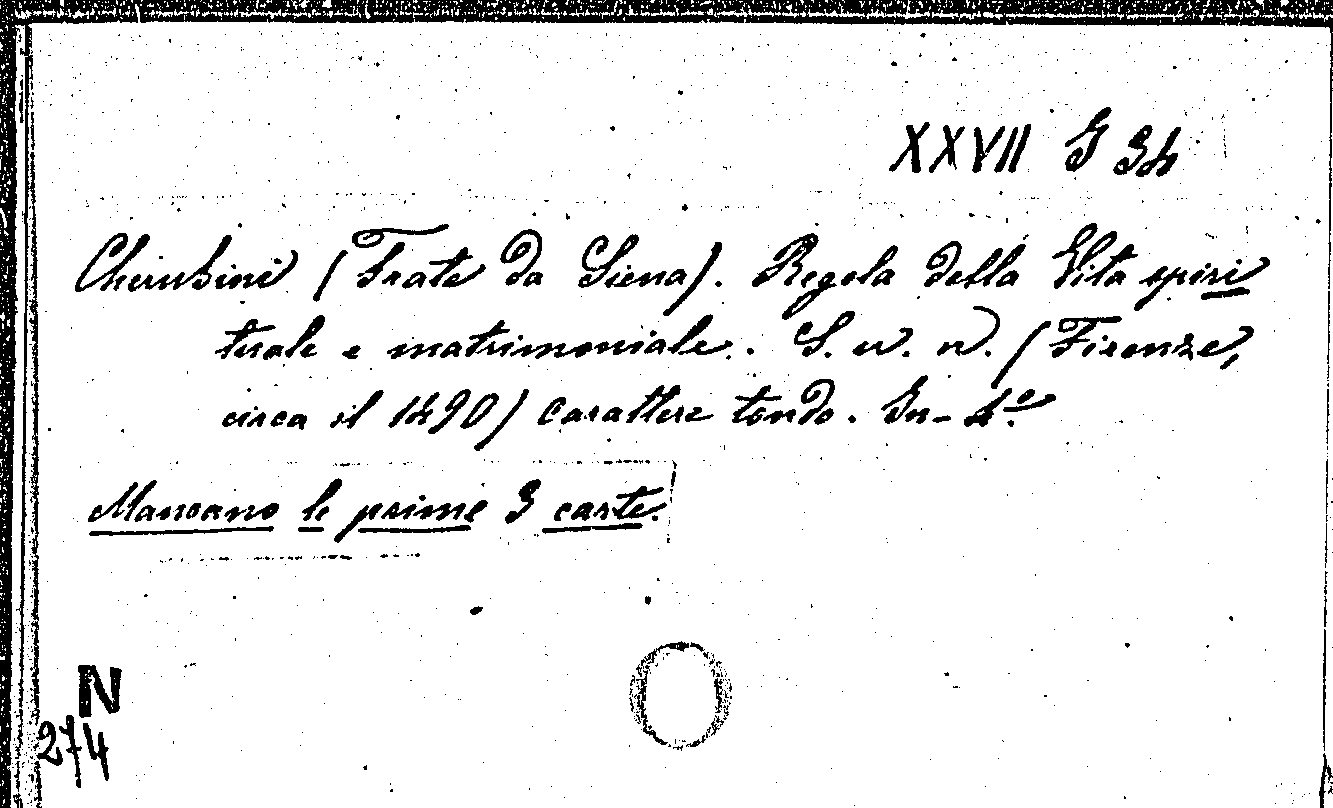 XXVII G 34
Cherubini (Frate da Siena). Regola della Vita spiri
tuale e matrimoniale. S. u. n. (Firenze,
circa il 1490) carattere tondo. In-4.º
Mancano le prime 3 carte.
N
274